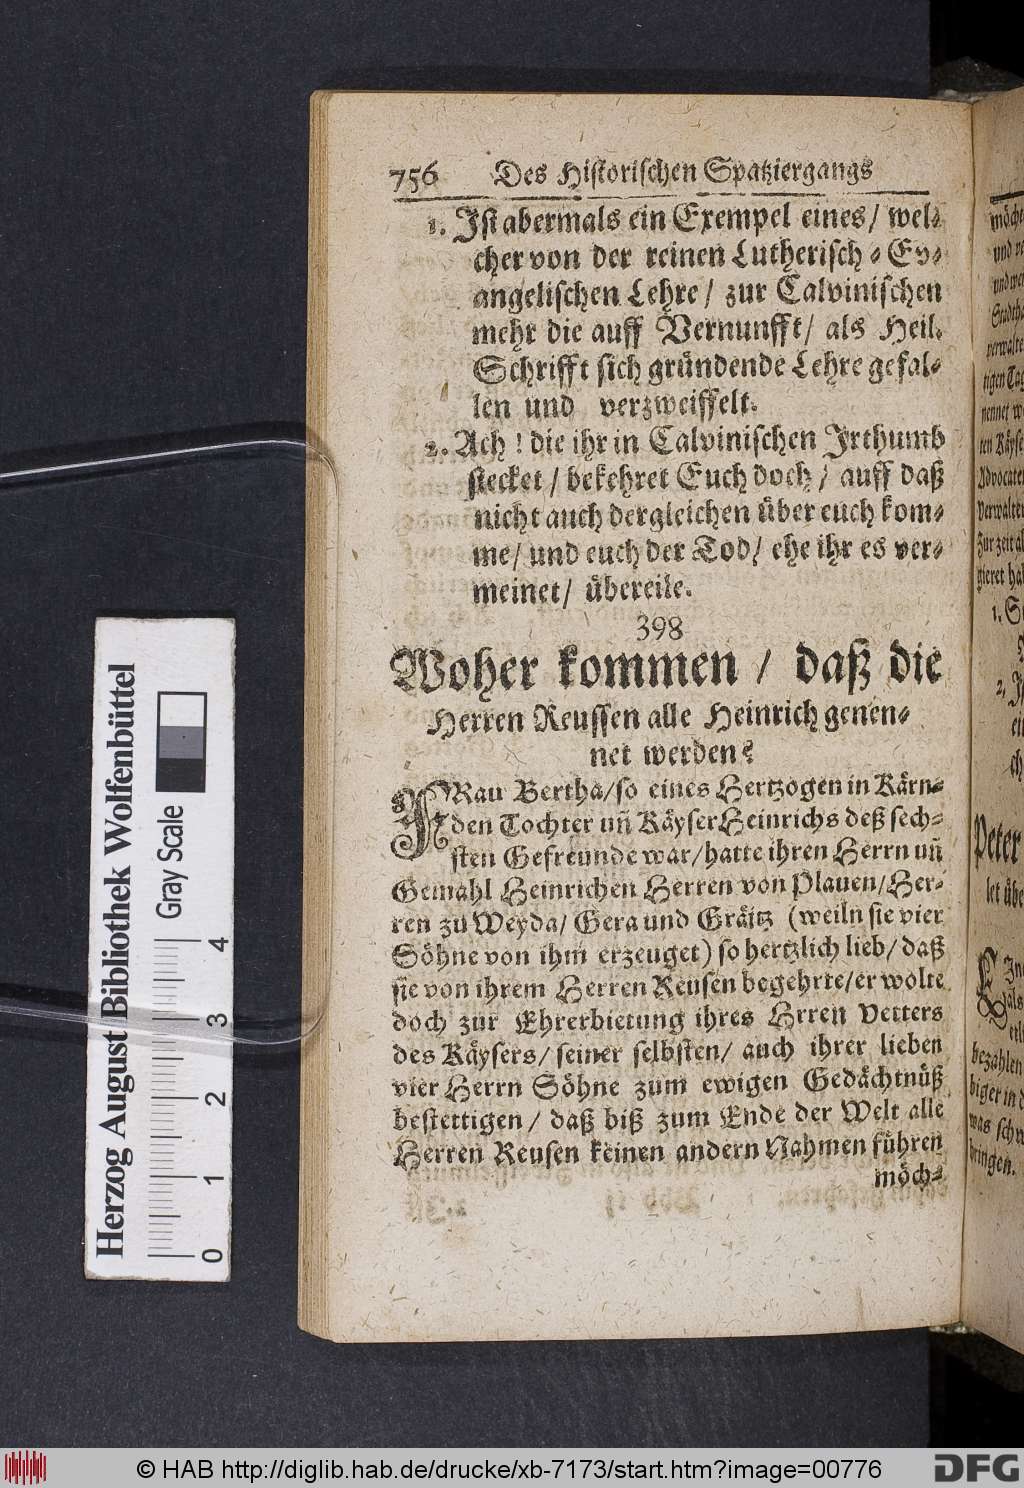 756 Des Historischen Spatziergangs
1. Ist abermals ein Exempel eines/ wel-
cher von der reinen Lutherisch-Ev-
angelischen Lehre/ zur Calvinischen
mehr die auff Vernunfft/ als Heil.
Schrifft sich gründende Lehre gefal-
len und verzweiffelt.
2. Ach! die ihr in Calvinischen Irthumb
stecket/ bekehret Euch doch/ auff daß
nicht auch dergleichen über euch kom-
me/ und euch der Tod/ ehe ihr es ver-
meinet/ übereile.
398
Woher kommen/ daß die
Herren Reussen alle Heinrich genen-
net werden?
FRau Bertha/so eines Hertzogen in Kärn-
den Tochter uñ Käyser Heinrichs deß sech-
sten Gefreunde war/hatte ihren Herrn uñ
Gemahl Heinrichen Herren von Plauen/Her-
ren zu Weyda/ Gera und Gräitz (weiln sie vier
Söhne von ihm erzeuget) so hertzlich lieb/ daß
sie von ihrem Herren Reusen begehrte/er wolte
doch zur Ehrerbietung ihres Hrren Vetters
des Käysers/ seiner selbsten/ auch ihrer lieben
vier Herrn Söhne zum ewigen Gedächtnüß
bestettigen/ daß biß zum Ende der Welt alle
Herren Reusen keinen andern Nahmen führen
möch-
Herzog August Bibliothek Wolfenbüttel
Gray Scale
0 1 2 3 4
möch
und ve
und wei
Stadtha
verwalte
rigen Tag
nennet w
ten Käyse
Advocaten
verwalten
Zur zeit al
gieret hab
1. S
2. J
ei
ch
Peter
let übe
als
bezahlen
biger in d
was sch
bringen.
© HAB http://diglib.hab.de/drucke/xb-7173/start.htm?image=00776
DFG